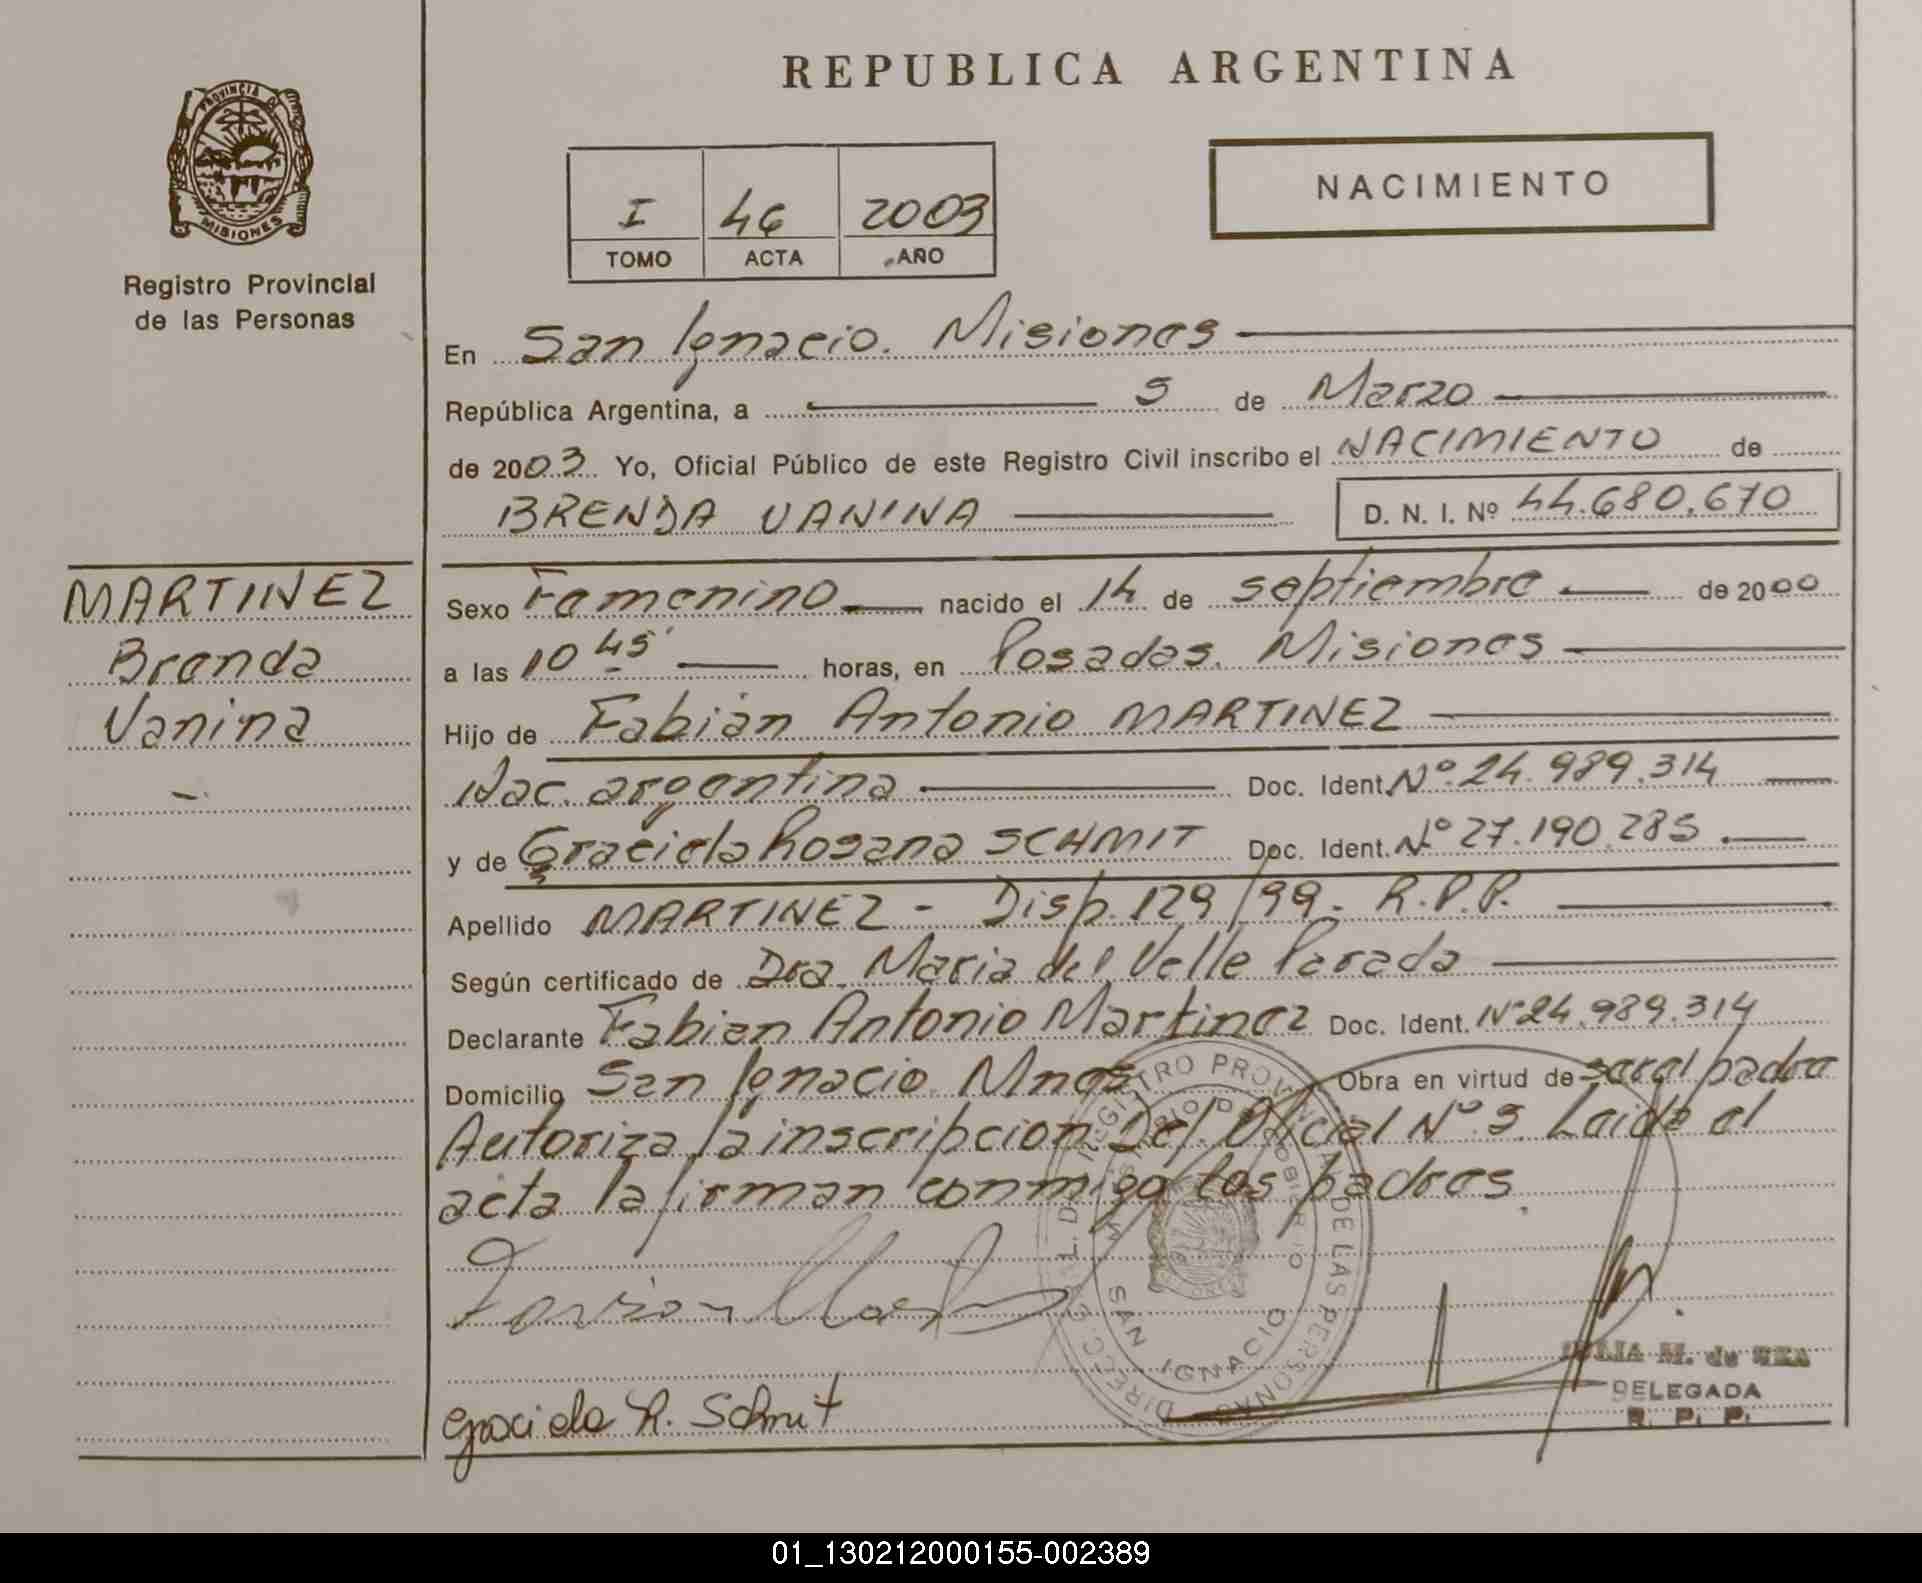 REPUBLICA ARGENTINA
PROVINCIA DE
MISIONES
Registro Provincial
de las Personas
I 46 2003
TOMO ACTA AÑO
NACIMIENTO
En San Ignacio. Misiones
República Argentina, a 5 de Marzo
de 2003 Yo, Oficial Público de este Registro Civil inscribo el NACIMIENTO de
BRENDA VANINA D. N. I. Nº 44.680.670
MARTINEZ
Brenda
Vanina
Sexo Femenino nacido el 14 de septiembre de 2000
a las 10 45' horas, en Posadas. Misiones
Hijo de Fabián Antonio MARTINEZ
Nac. argentina Doc. Ident. Nº 24.989.314
y de Graciela Rosana SCHMIT Doc. Ident. Nº 27.190.285
Apellido MARTINEZ - Disp. 129/99. R.P.P.
Según certificado de Dra. Maria del Valle Parada
Declarante Fabian Antonio Martinez Doc. Ident. Nº 24.989.314
Domicilio San Ignacio. Mnes Obra en virtud de ser el padre
Autoriza la inscripcion Del. Oficial Nº 3. Leida el
acta la firman conmigo los padres.
DIRECC. GRAL. DEL REGISTRO PROVINCIAL DE LAS PERSONAS
MINISTERIO DE GOBIERNO
SAN IGNACIO
Graciela R. Schmit
JULIA M. de
DELEGADA
R. P. P.
01_130212000155-002389